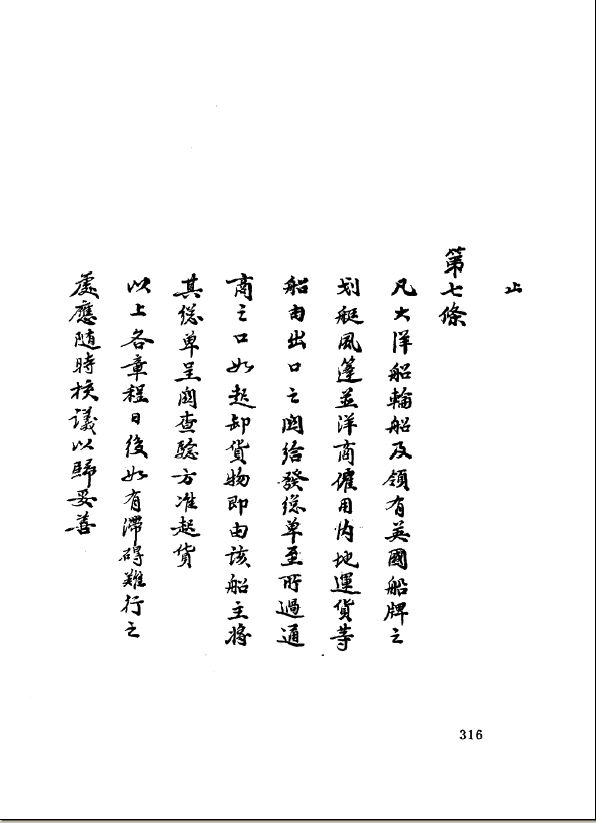 止
第七條
凡大洋船輪船及領有英國船牌之
划艇風篷並洋商僱用內地運貨等
船由出口之關給發總單至所過通
商之口如起卸貨物即由該船主將
其總單呈關查驗方准起貨
以上各章程日後如有滯碍難行之
處應隨時核議以歸妥善
316